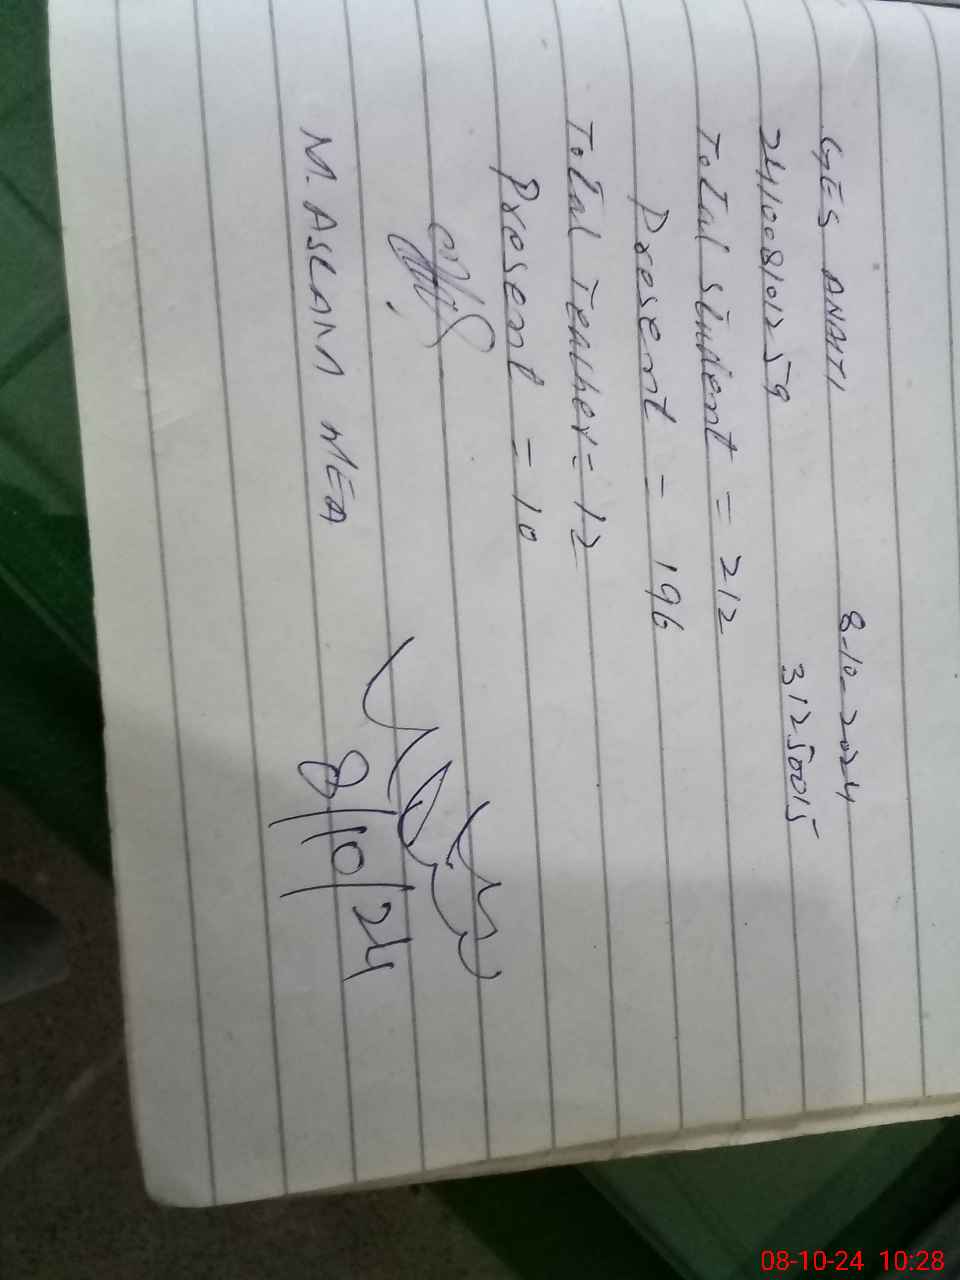 GES ANAITI 8-10-2024
241008101259 31250015
Total Student = 212
Present = 196
Total Teacher = 12
Present = 10
M. ASLAM MEA
8/10/24
08-10-24 10:28